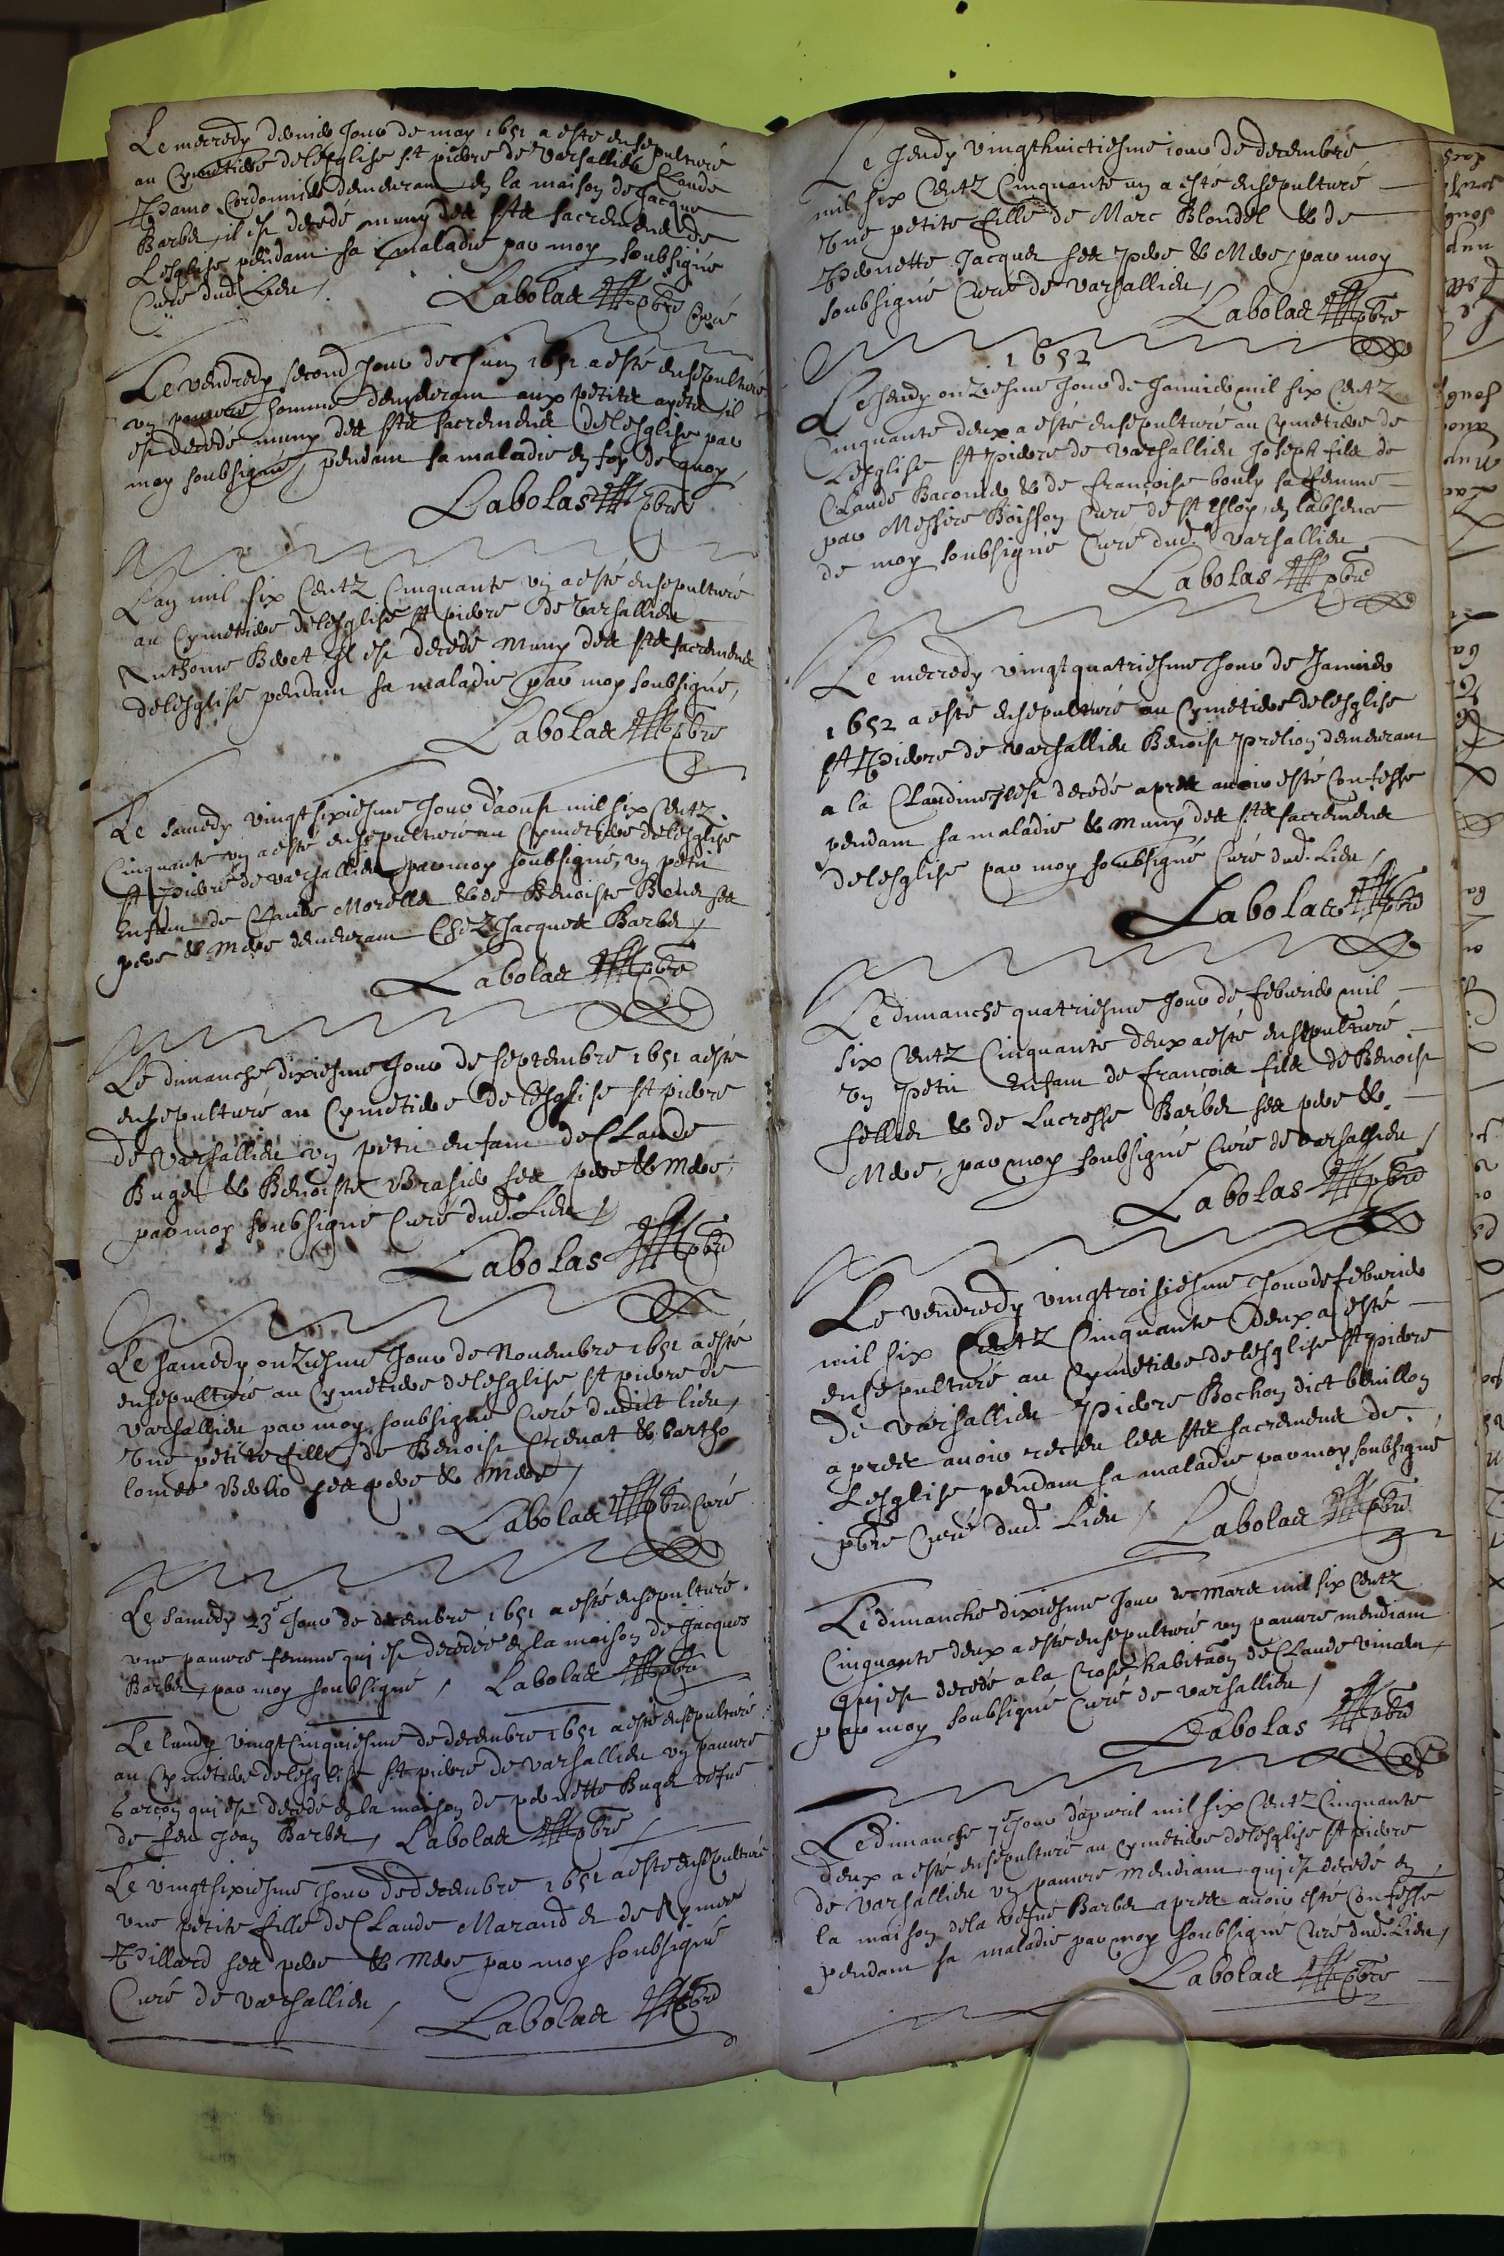 Le mecredy dernier Jour de may 1651 a esté ensepulturé
au Cymetiere de lesglise st pierre de Varsallieu Claude
Thamo Cordonnier demeurant en la maison de Jacque
Barbes, il est decedé muny des sts sacremens de
Lesglise pendant sa maladie par moy soubsigné
Curé dud. Lieu,
Labolas pbre Curé
Le vendredy second Jour de Juin 1651 a esté ensepulturé
un pauvre homme demeurant aux petites il
est decedé muny des sts sacremens de lesglise par
moy soubsigné, pendant sa maladie en foy de quoy
Labolas pbre
Lan mil six Centz Cinquante un a esté ensepulturé
au Cymetiere de lesglise st pierre de Varsallieu
Anthoine il est decedé muny des sts sacremens
de lesglise pendant sa maladie par moy soubsigné,
Labolas pbre
Le samedy vingt sixiesme Jour daoust mil six Centz
Cinquante un a esté ensepulturé au Cymetiere de lesglise
st pierre de varsallieu par moy soubsigné, un petit
enfant de Claude Morelles & de Benoiste ses
pere & Mere demeurant Chez Jacques Barbes,
Labolas pbre
Le dimanche dixiesme Jour de septembre 1651 a esté
ensepulturé au Cymetiere de lesglise st pierre
de Varsallieu un petit enfant de Claude
Buges & Benoiste ses pere & Mere,
par moy soubsigné Curé dud. Lieu,
Labolas pbre
Le samedy onziesme Jour de Novembre 1651 a esté
ensepulturé au Cymetiere de lesglise st pierre de
varsallieu par moy soubsigné Curé dudict lieu,
Une petite fille de Benoist Crenat & bartho
lomee ses pere & Mere,
Labolas pbre Curé
Le samedy 23e Jour de decembre 1651 a esté ensepulturé
une pauvre femme qui est decedée en la maison de Jacques
Barbes, par moy soubsigné, Labolas pbre
Le lundy vingt Cinquiesme de decembre 1651 a esté ensepulturé
au Cymetiere de lesglise st pierre de varsallieu un pauvre
Garçon qui est decedé en la maison de pernette Buges vefue
de feu Jean Barbes, Labolas pbre
Le vingt sixiesme Jour de decembre 1651 a esté ensepulturé
une petite fille de Claude Marand & de Aymee
Thillard ses pere & Mere par moy soubsigné
Curé de varsallieu,
Labolas pbre
Le Jeudy vingt huictiesme iour de decembre
mil six Centz Cinquante un a esté ensepulturé
Une petite fille de Marc Blondel & de
Pernette Jacques ses pere & Mere, par moy
soubsigné Curé de varsallieu,
Labolas pbre
1652
Le Jeudy onziesme Jour de Janvier mil six Centz
Cinquante deux a esté ensepulturé au Cymetiere de
Lesglise st pierre de varsallieu Joseph fils de
Claude & de françoise bouly sa femme
par Messire Boisson Curé de st Esloy, en labsence
de moy soubsigné Curé dud. varsallieu
Labolas pbre
Le mecredy vingt quatriesme Jour de Janvier
1652 a esté ensepulturé au Cymetiere de lesglise
st Pierre de varsallieu Benoist Prelion demeurant
a la Claudine, Il est decedé apres avoir esté Confessé
pendant sa maladie & muny des sts sacremens
de lesglise par moy soubsigné Curé dud. Lieu,
Labolas pbre
Le dimanche quatriesme Jour de febvrier mil
six Centz Cinquante deux a esté ensepulturé
un Petit Enfant de françois fils de Benoist
sellier & de Lucresse Barbes ses pere &
Mere, par moy soubsigné Curé de varsallieu,
Labolas pbre
Le vendredy vingt troisiesme Jour de febvrier
mil six Centz Cinquante deux a esté
ensepulturé au Cymetiere de lesglise st pierre
de varsallieu Pierre Bochon dict beuillon
apres avoir receu les sts sacremens de
Lesglise pendant sa maladie par moy soubsigné
pbre Curé dud. Lieu, Labolas pbre
Le dimanche dixiesme Jour de Mars mil six Centz
Cinquante deux a esté ensepulturé un pauvre mendiant
qui est decedé a la Crose habitaon de Claude
par moy soubsigné Curé de varsallieu,
Labolas pbre
Le dimanche 7e Jour d'apvril mil six Centz Cinquante
deux a esté ensepulturé au Cymetiere de lesglise st pierre
de varsallieu un pauvre mendiant qui est decedé en
la maison de la vefue Barbes apres avoir esté Confessé
pendant sa maladie par moy soubsigné Curé dud. Lieu,
Labolas pbre